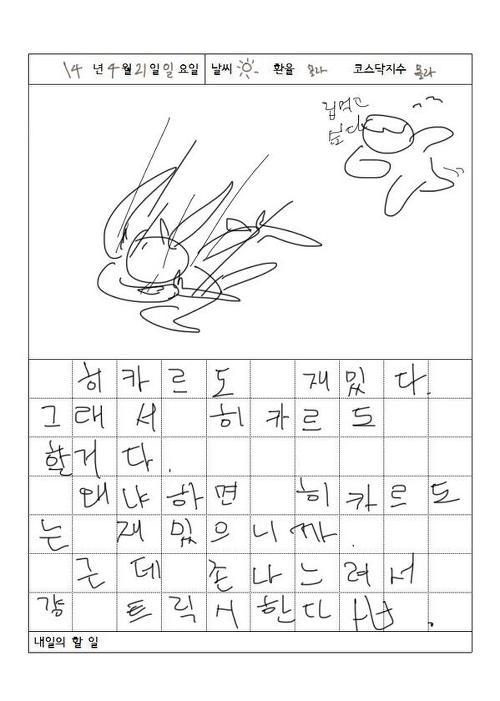 14 년 4 월 21 일 일 요일 날씨 환율 몰라 코스닥지수 몰라
립먹고
싶다
히카르도 재밌다.
그래서 히카르도
할거다.
왜냐하면 히카르도
는 재밌으니까.
근데 존나느려서
걍 트릭시한다 ㅅㅂ.
내일의 할 일